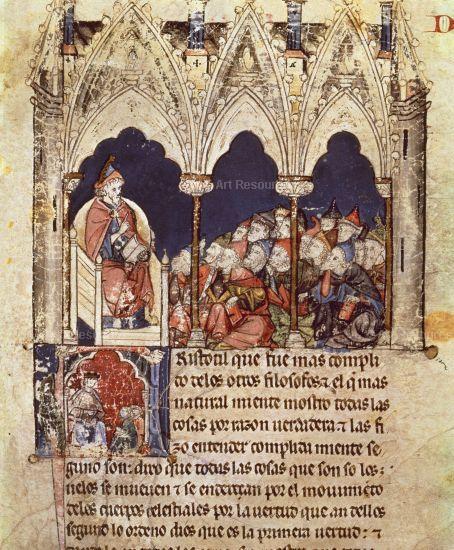 D
Art Resour
Aristotil que fue mas compli
do delos otros filosofos ⁊ el q̃ mas
natural miente mostro todas las
cosas por razon uerdadera ⁊ las fi
zo entender complida miente se
guno son: dixo que todas las cosas que son so los
cielos se mueuen ⁊ se endereçan por el mouimiẽto
delos cuerpos celestiales por la uertud que an dellos
segund lo ordeno dios que es la primera uertud: ⁊